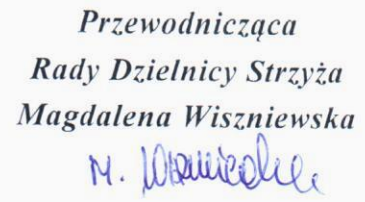 Przewodnicząca
Rady Dzielnicy Strzyża
Magdalena Wiszniewska
M.